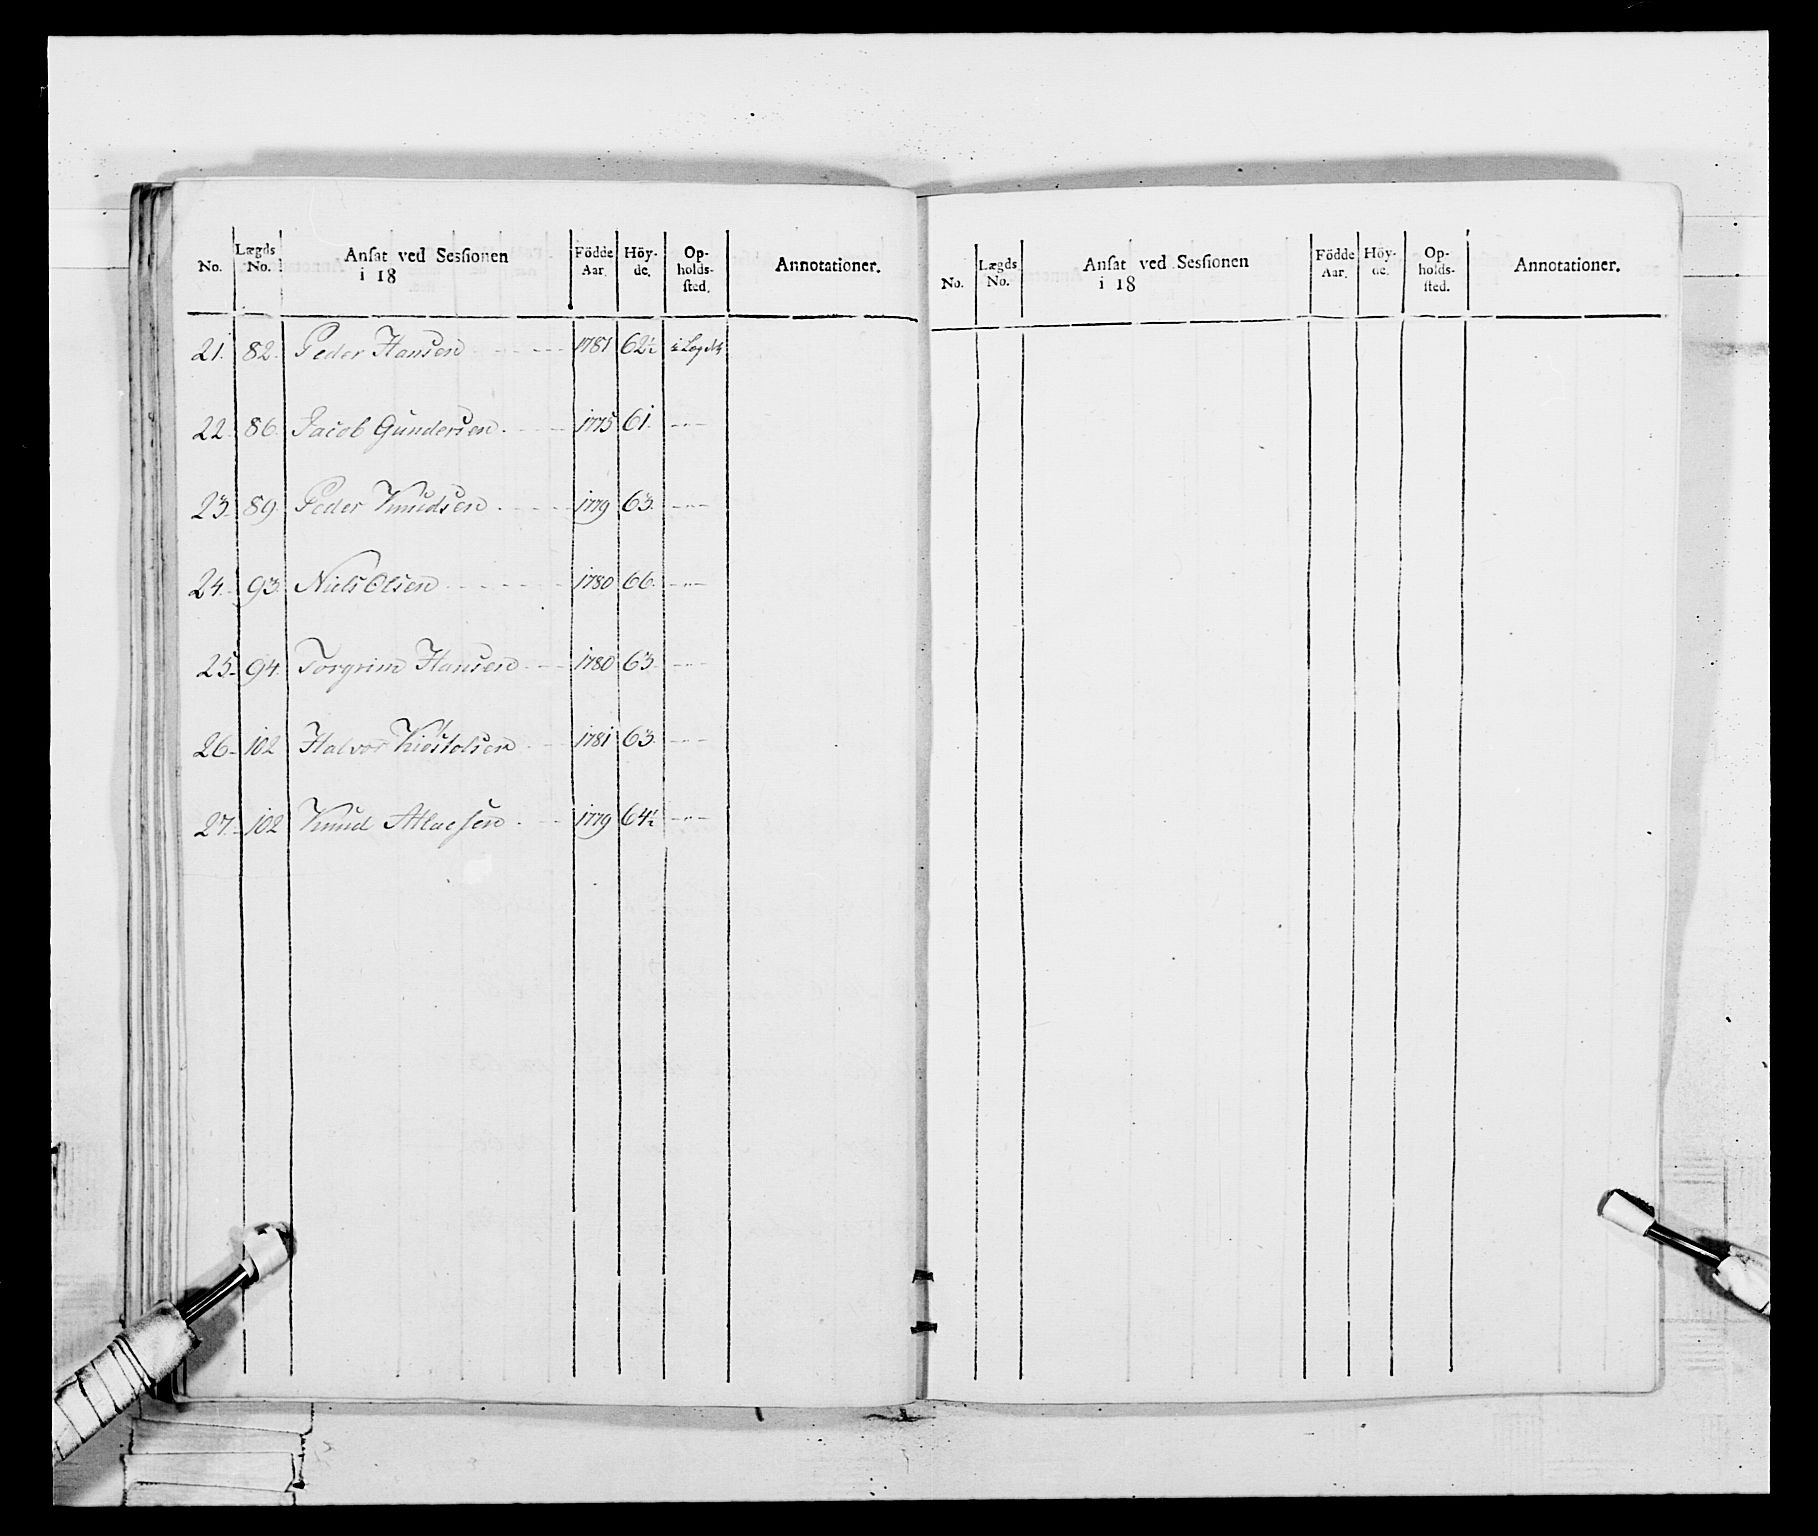 No. Lægds No. Ansat ved Sessionen i 18 Födde Aar. Höyde. Opholdssted. Annotationer.
21. 82. Peder Hansen 1781 62½ i Lægdet
22. 86. Jacob Gundersen 1775 61. -"-
23. 89. Peder Knudsen 1779 63. -"-
24. 93. Niels Olsen 1780 66. -"-
25. 94. Torgrim Hansen 1780 63. -"-
26. 102 Halvor Kiostolsen 1781 63. -"-
27. 102 Knud 1779 64½ -"-
No. Lægds No. Ansat ved Sessionen i 18 Födde Aar. Höyde. Opholdssted. Annotationer.